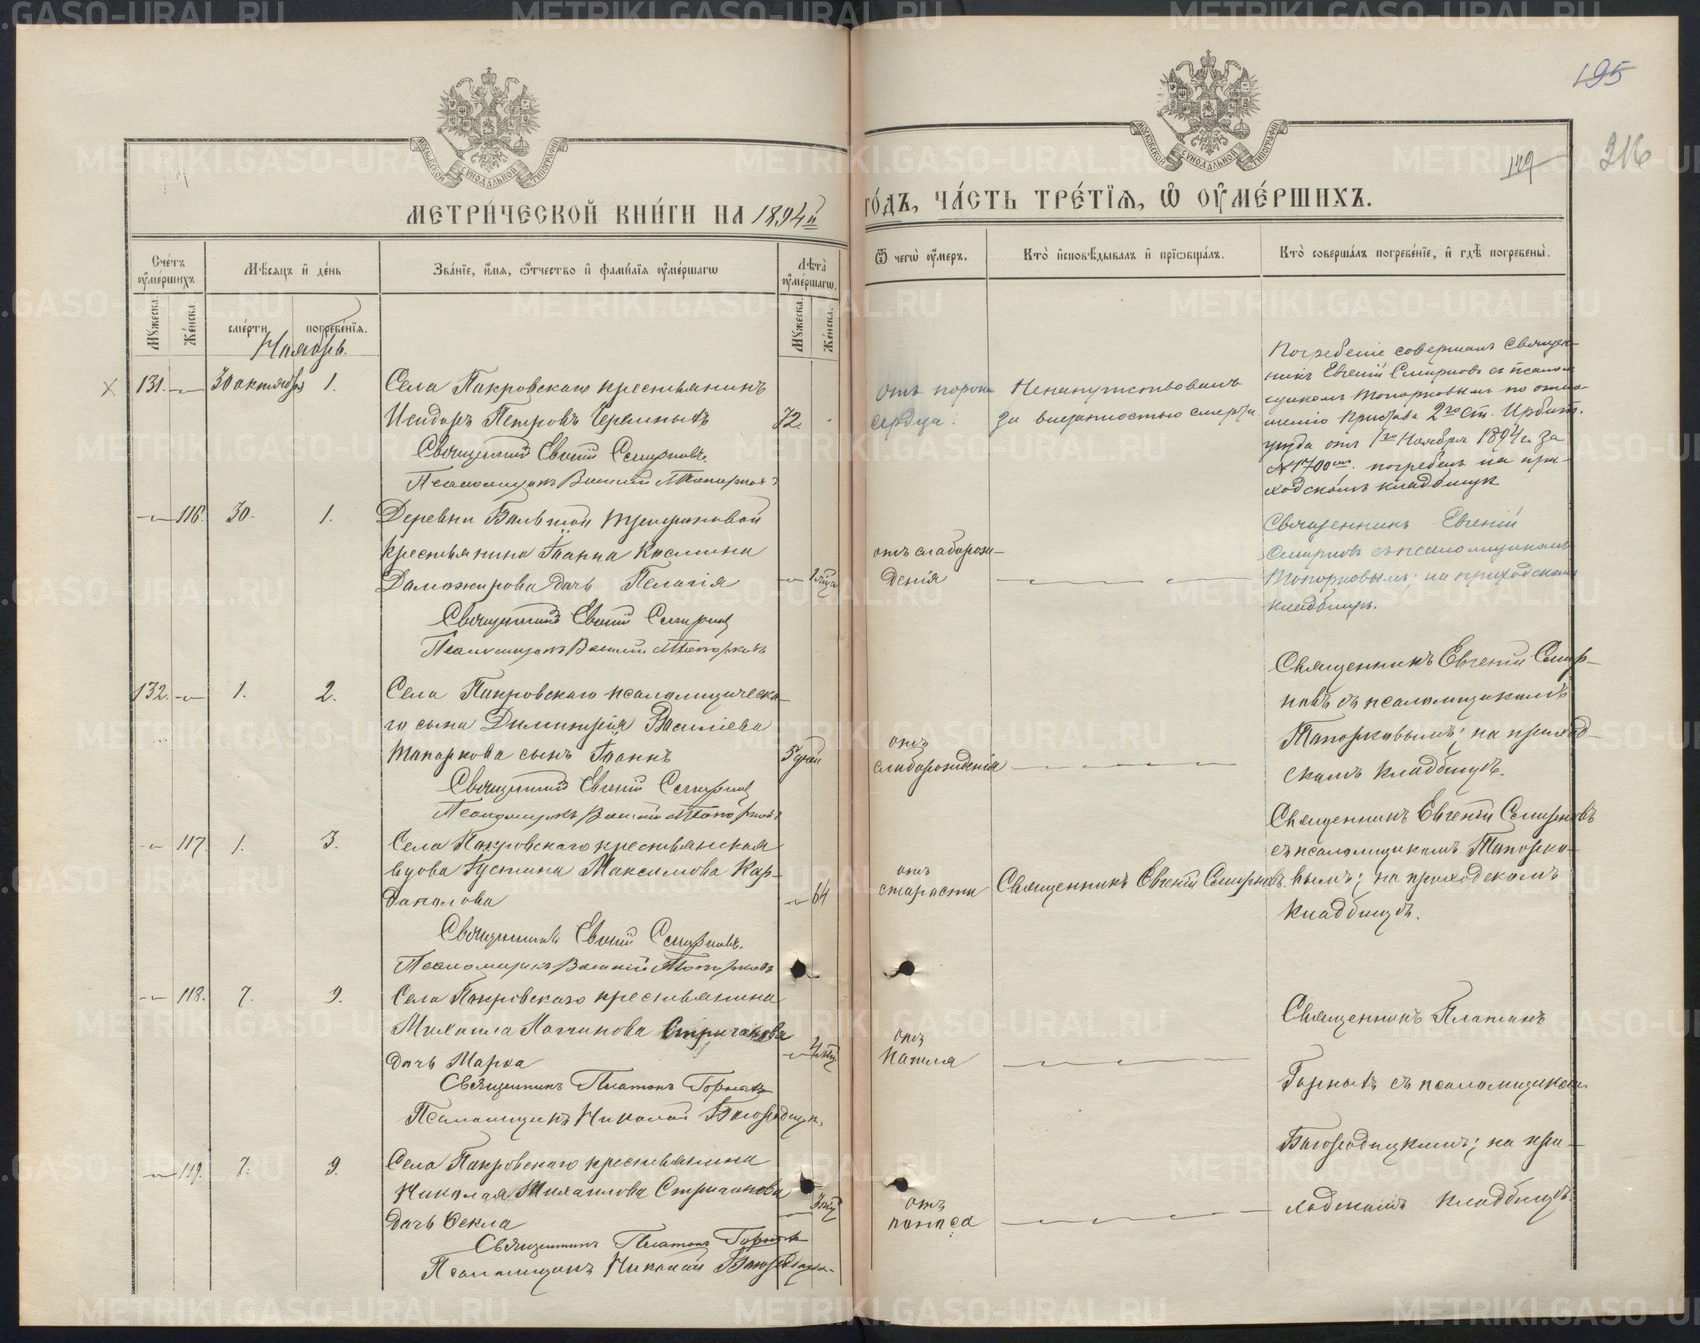 195
216
149
МЕТРИ́ЧЕСКОЙ КНИ́ГИ НА 1894й
ГО́ДЪ, ЧА́СТЬ ТРЕ́ТІѦ, Ѡ҆ ОУ҆МЕ́РШИХЪ.
Сче́тъ оу҆ме́ршихъ
Мѣ́сяцъ и҆ де́нь
Зва́нїе, и҆́мя, ѻ҆́тчество и҆ фами́лїя оу҆ме́ршагѡ
Лѣта̀ оу҆ме́ршагѡ.
Ѿ чегѡ̀ оу҆́меръ.
Кто̀ и҆сповѣ́дывалъ и҆ прїѡбща́лъ.
Кто̀ соверша́лъ погребе́нїе, и҆ гдѣ̀ погребены̀.
Мꙋжеска.
Же́нска.
сме́рти
погребе́нїя.
Мꙋжеска.
Же́нска.
Ноябрь.
131. 30 октября 1.
Села Покровскаго крестьянинъ
Исидоръ Петровъ Черемныхъ 72
Священникъ Евгеній Смирновъ.
Псаломщикъ Василій Топорковъ
отъ порока
сердца.
Ненапутствованъ
за внезапностью смерти.
Погребеніе совершалъ Священ-
никъ Евгеній Смирновъ съ псалом
щикомъ Топорковымъ по отно-
шенію Пристава 2го Ст. Ирбит.
уѣзда отъ 1го Ноября 1894 г. за
№ 1700мъ. погребенъ на при-
ходскомъ кладбищѣ
116. 30. 1.
Деревни Большой
крестьянина Іоанна Космина
Доможирова дочь Пелагія
Священникъ Евгеній Смирновъ
Псаломщикъ Василій Топорковъ
отъ слаборож-
денія
Священникъ Евгеній
Смирновъ съ псаломщикомъ
Топорковымъ; на приходскомъ
кладбищѣ.
132. 1. 2.
Села Покровскаго псаломщическа-
го сына Димитрія Васильева
Топоркова сынъ Іоаннъ 5 дней
Священникъ Евгеній Смирновъ
Псаломщикъ Василій Топорковъ
отъ
слаборожденія
Священникъ Евгеній Смир-
новъ съ псаломщикомъ
Топорковымъ; на приход-
скомъ кладбищѣ.
117. 1. 3.
Села Покровскаго крестьянская
вдова Іустина Максимова Кар-
даполова 64
Священникъ Евгеній Смирновъ.
Псаломщикъ Василій Топорковъ
отъ
старости
Священникъ Евгеній Смирновъ.
Священникъ Евгеній Смирновъ
съ псаломщикомъ Топорко-
вымъ; на приходскомъ
кладбищѣ.
118. 7. 9.
Села Покровскаго крестьянина
Михаила Логинова Стриганова
дочь Марѳа
Священникъ Платонъ Горныхъ
Псаломщикъ Николай Богородицк.
отъ
кашля
Священникъ Платонъ
Горныхъ съ псаломщикомъ
Богородицкимъ; на при-
ходскомъ кладбищѣ.
119. 7. 9.
Села Покровскаго крестьянина
Николая Михайлова Стриганова
дочь Ѳекла
Священникъ Платонъ Горныхъ
Псаломщикъ Николай
отъ
поноса
METRIKI.GASO-URAL.RU